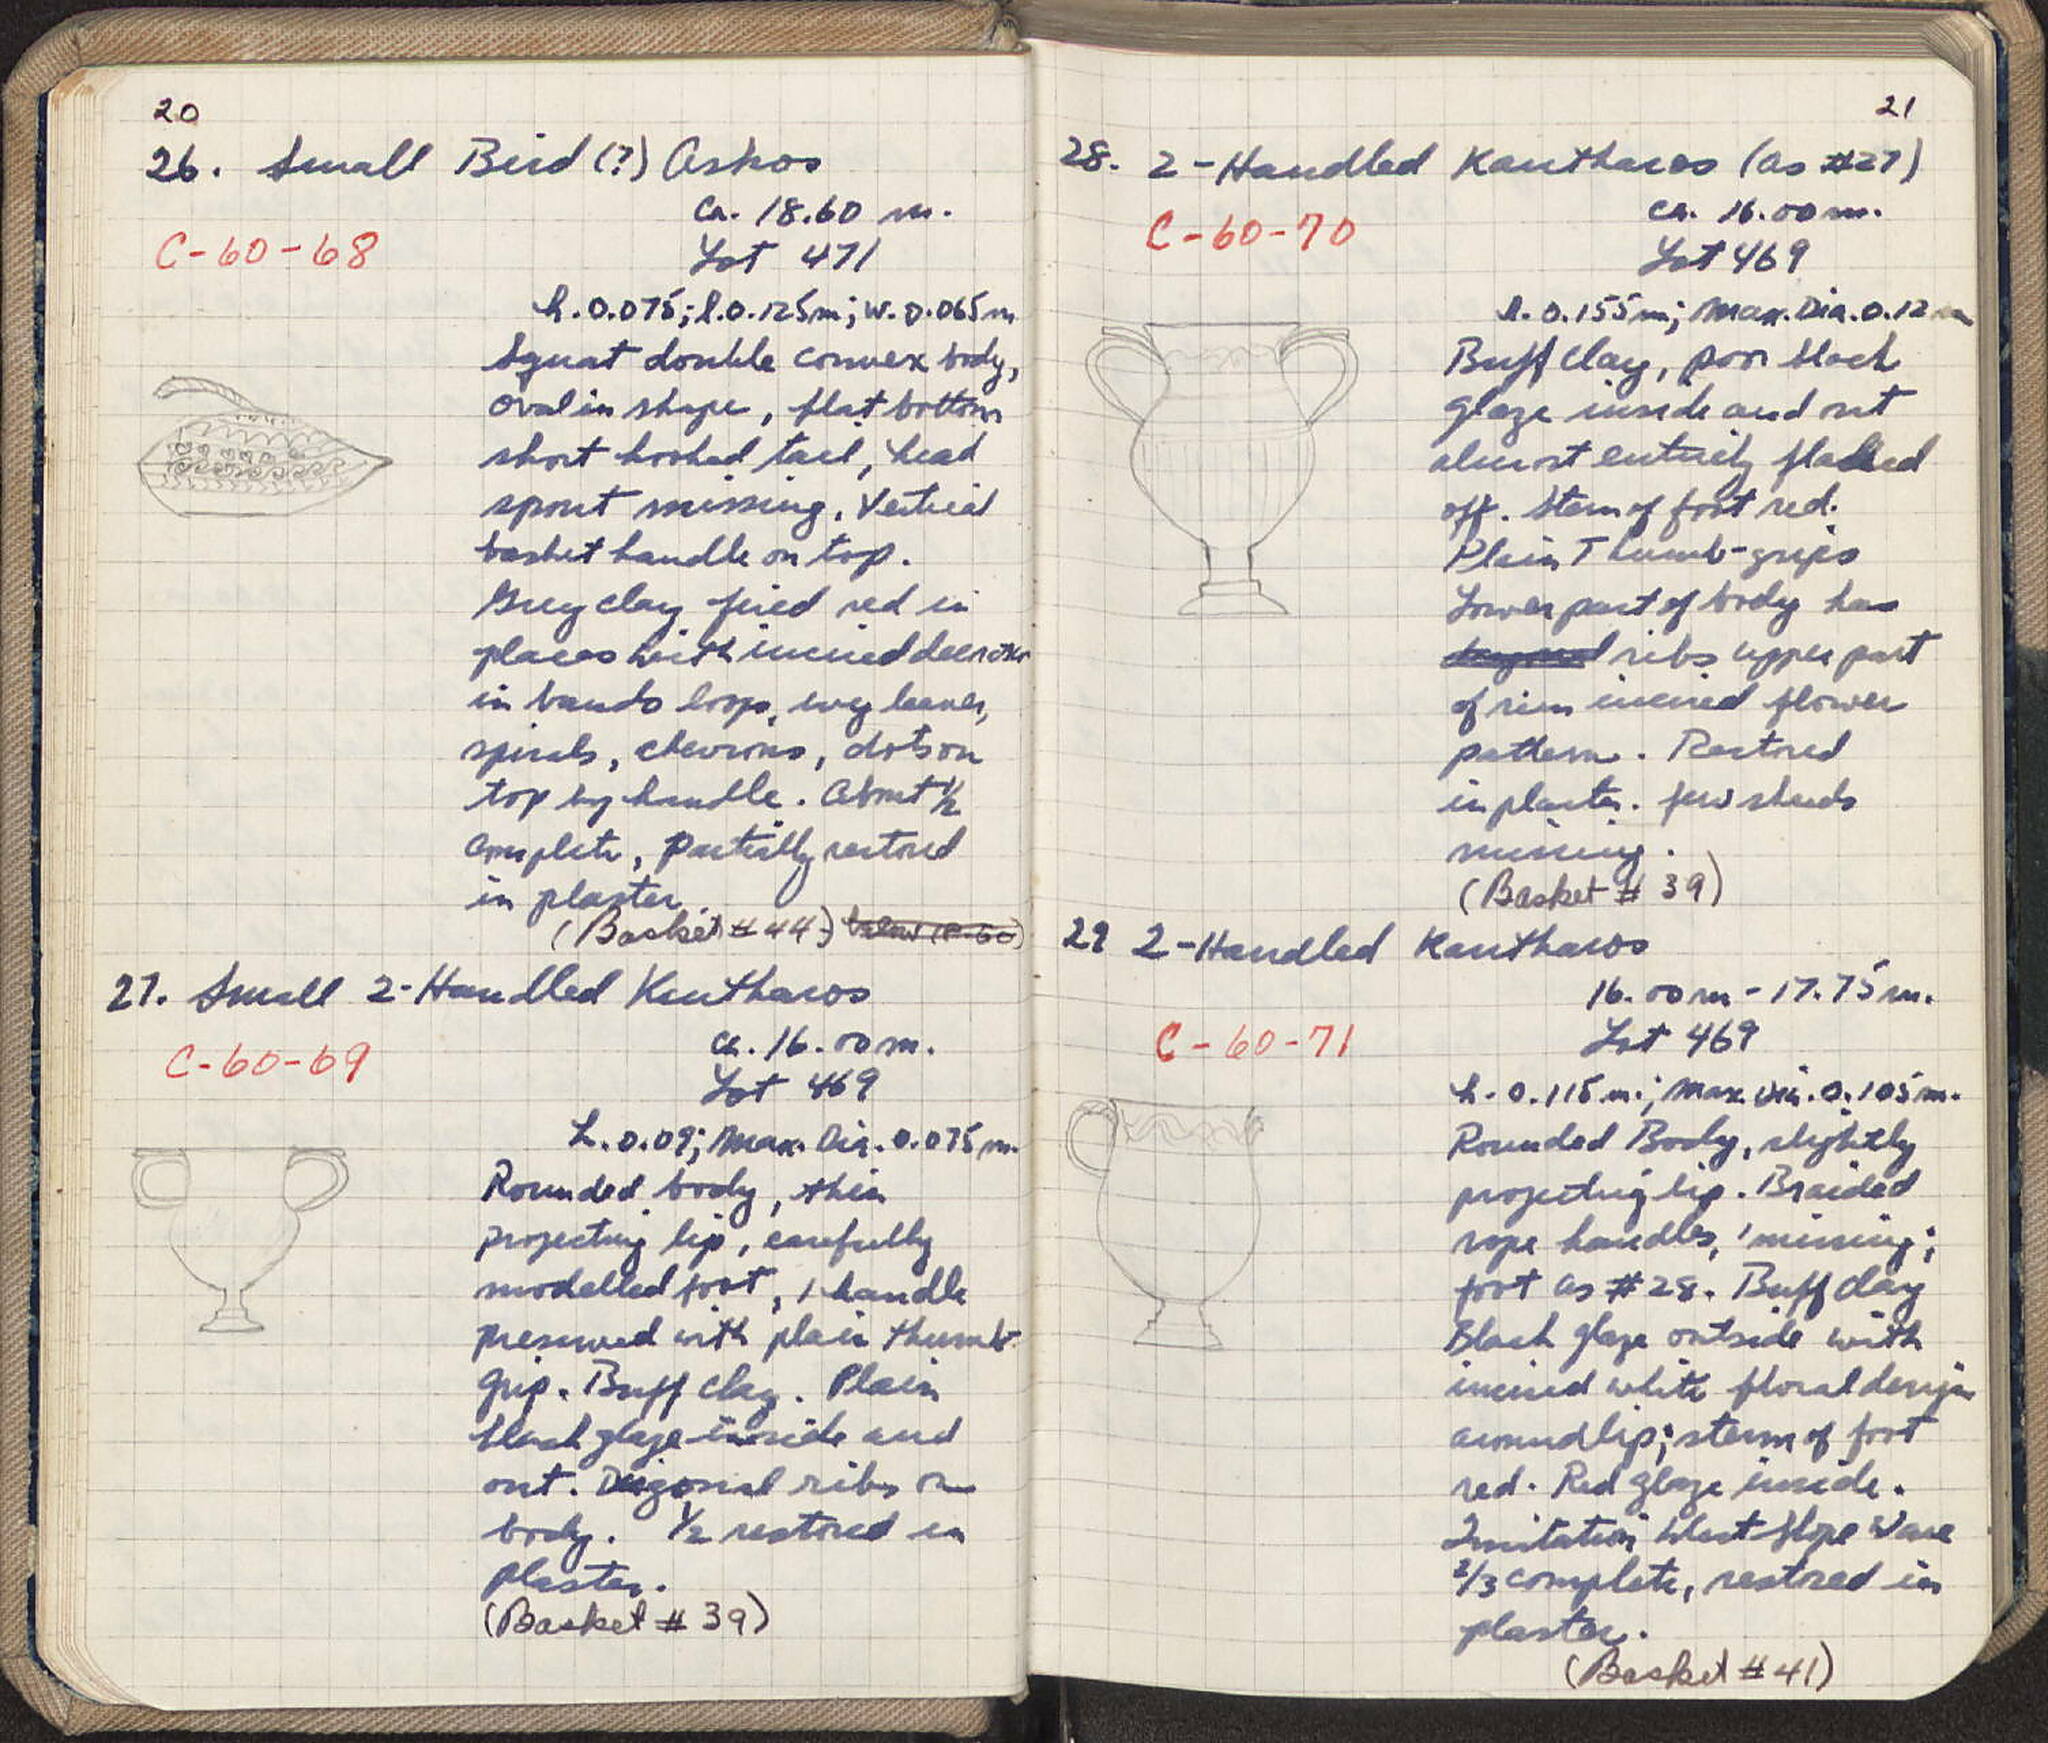 20
26. Small Bird (?) Askos
ca. 18.60 m.
C-60-68
Lot 471
h. 0.075; l. 0.125m; w. 0.065m
Squat double convex body,
oval in shape, flat bottom
short hooked tail, head
spout missing, Vertical
basket handle on top.
Grey clay fired red in
places with incised decoration
in bands loops, ivy leaves,
spirals, chevrons, dots on
top by handle. About 1/2
complete, partially restored
in plaster.
(Basket #44)
27. Small 2-Handled Kantharos
ca. 16.00m.
C-60-69
Lot 469
h. 0.09; Max. Dia. 0.075m.
Rounded body, thin
projecting lip, carefully
modelled foot, 1 handle
preserved with plain thumb-
grip. Buff clay. Plain
black glaze inside and
out. Diagonal ribs on
body. 1/2 restored in
plaster.
(Basket # 39)
21
28. 2-Handled Kantharos (as #27)
ca. 16.00m.
C-60-70
Lot 469
h. 0.155m; Max. Dia. 0.12 m
Buff clay, poor black
glaze inside and out
almost entirely flaked
off. Stem of foot red.
Plain Thumb-grips
Lower part of body has
diagonal ribs upper part
of rim incised flower
pattern. Restored
in plaster. few sherds
missing.
(Basket # 39)
29 2-Handled Kantharos
16.00m - 17.75m.
C-60-71
Lot 469
h. 0.115m.; Max Dia. 0.105m.
Rounded Body, slightly
projecting lip. Braided
rope handles, 1 missing;
foot as #28. Buff clay
Black glaze outside with
incised white floral design
around lip; stem of foot
red. Red glaze inside.
Imitation West Slope Ware
2/3 complete, restored in
plaster.
(Basket #41)